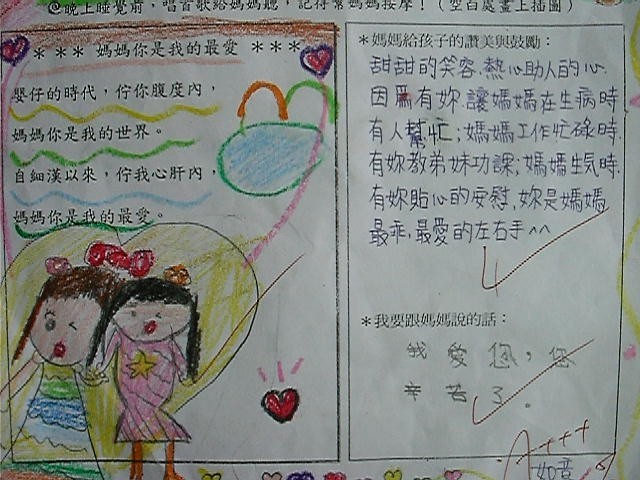 @晚上睡覺前，唱首歌給媽媽聽，記得幫媽媽按摩！（空白處畫上插圖）
＊＊＊ 媽媽你是我的最愛 ＊＊＊
嬰仔的時代，佇你腹度內，
媽媽你是我的世界。
自細漢以來，佇我心肝內，
媽媽你是我的最愛。
＊媽媽給孩子的讚美與鼓勵：
甜甜的笑容.熱心助人的心.
因為有妳.讓媽媽在生病時
有人幫忙;媽媽工作忙碌時.
有妳教弟妹功課;媽媽生氣時.
有妳貼心的安慰.妳是媽媽
最乖,最愛的左右手^^
＊我要跟媽媽說的話：
我愛您，您
辛苦了。
A+++
如意